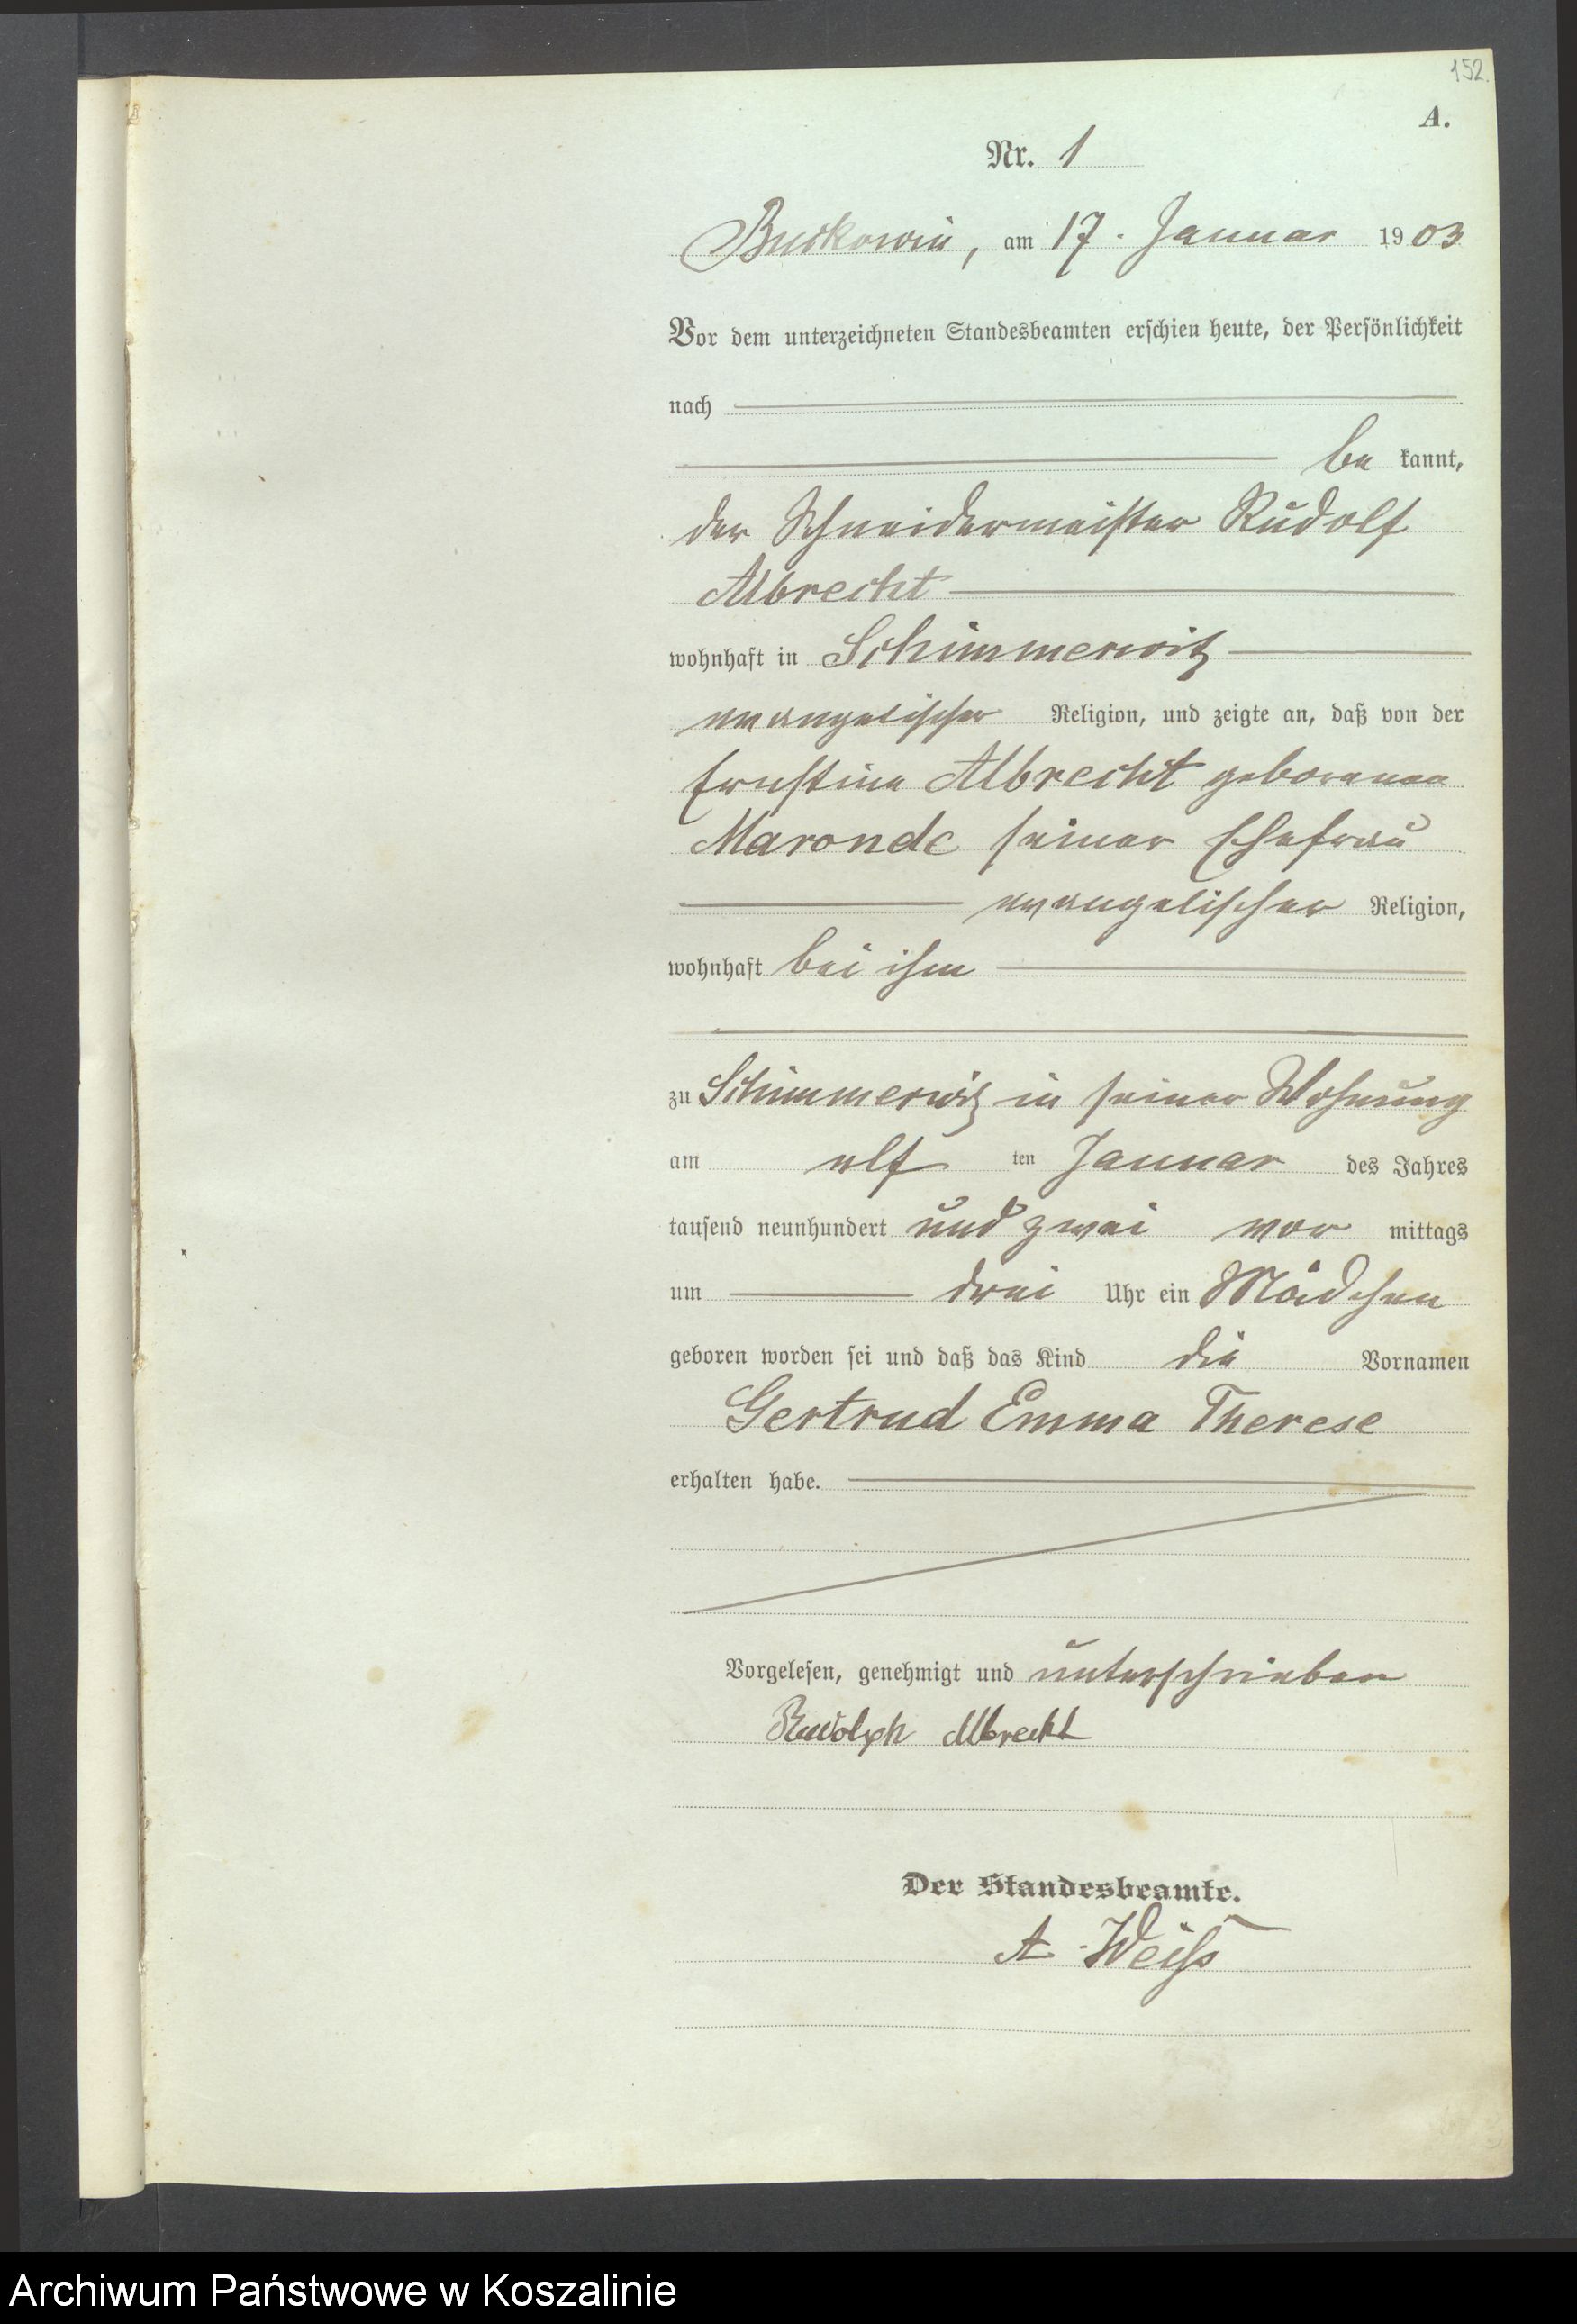 152.
A.
Nr. 1
Buckowin, am 17. Januar 1903
Vor dem unterzeichneten Standesbeamten erschien heute, der Persönlichkeit
nach
be kannt,
der Schneidermeister Rudolf
Albrecht
wohnhaft in Schimmerwitz
evangelischer Religion, und zeigte an, daß von der
Ernstine Albrecht geborenen
Maronde seiner Ehefrau
evangelischer Religion,
wohnhaft bei ihm
zu Schimmerwitz in seiner Wohnung
am elf ten Januar des Jahres
tausend neunhundert und zwei vor mittags
um drei Uhr ein Mädchen
geboren worden sei und daß das Kind die Vornamen
Gertrud Emma Therese
erhalten habe.
Vorgelesen, genehmigt und unterschrieben
Rudolph Albrecht
Der Standesbeamte.
A. Weiß
Archiwum Państwowe w Koszalinie